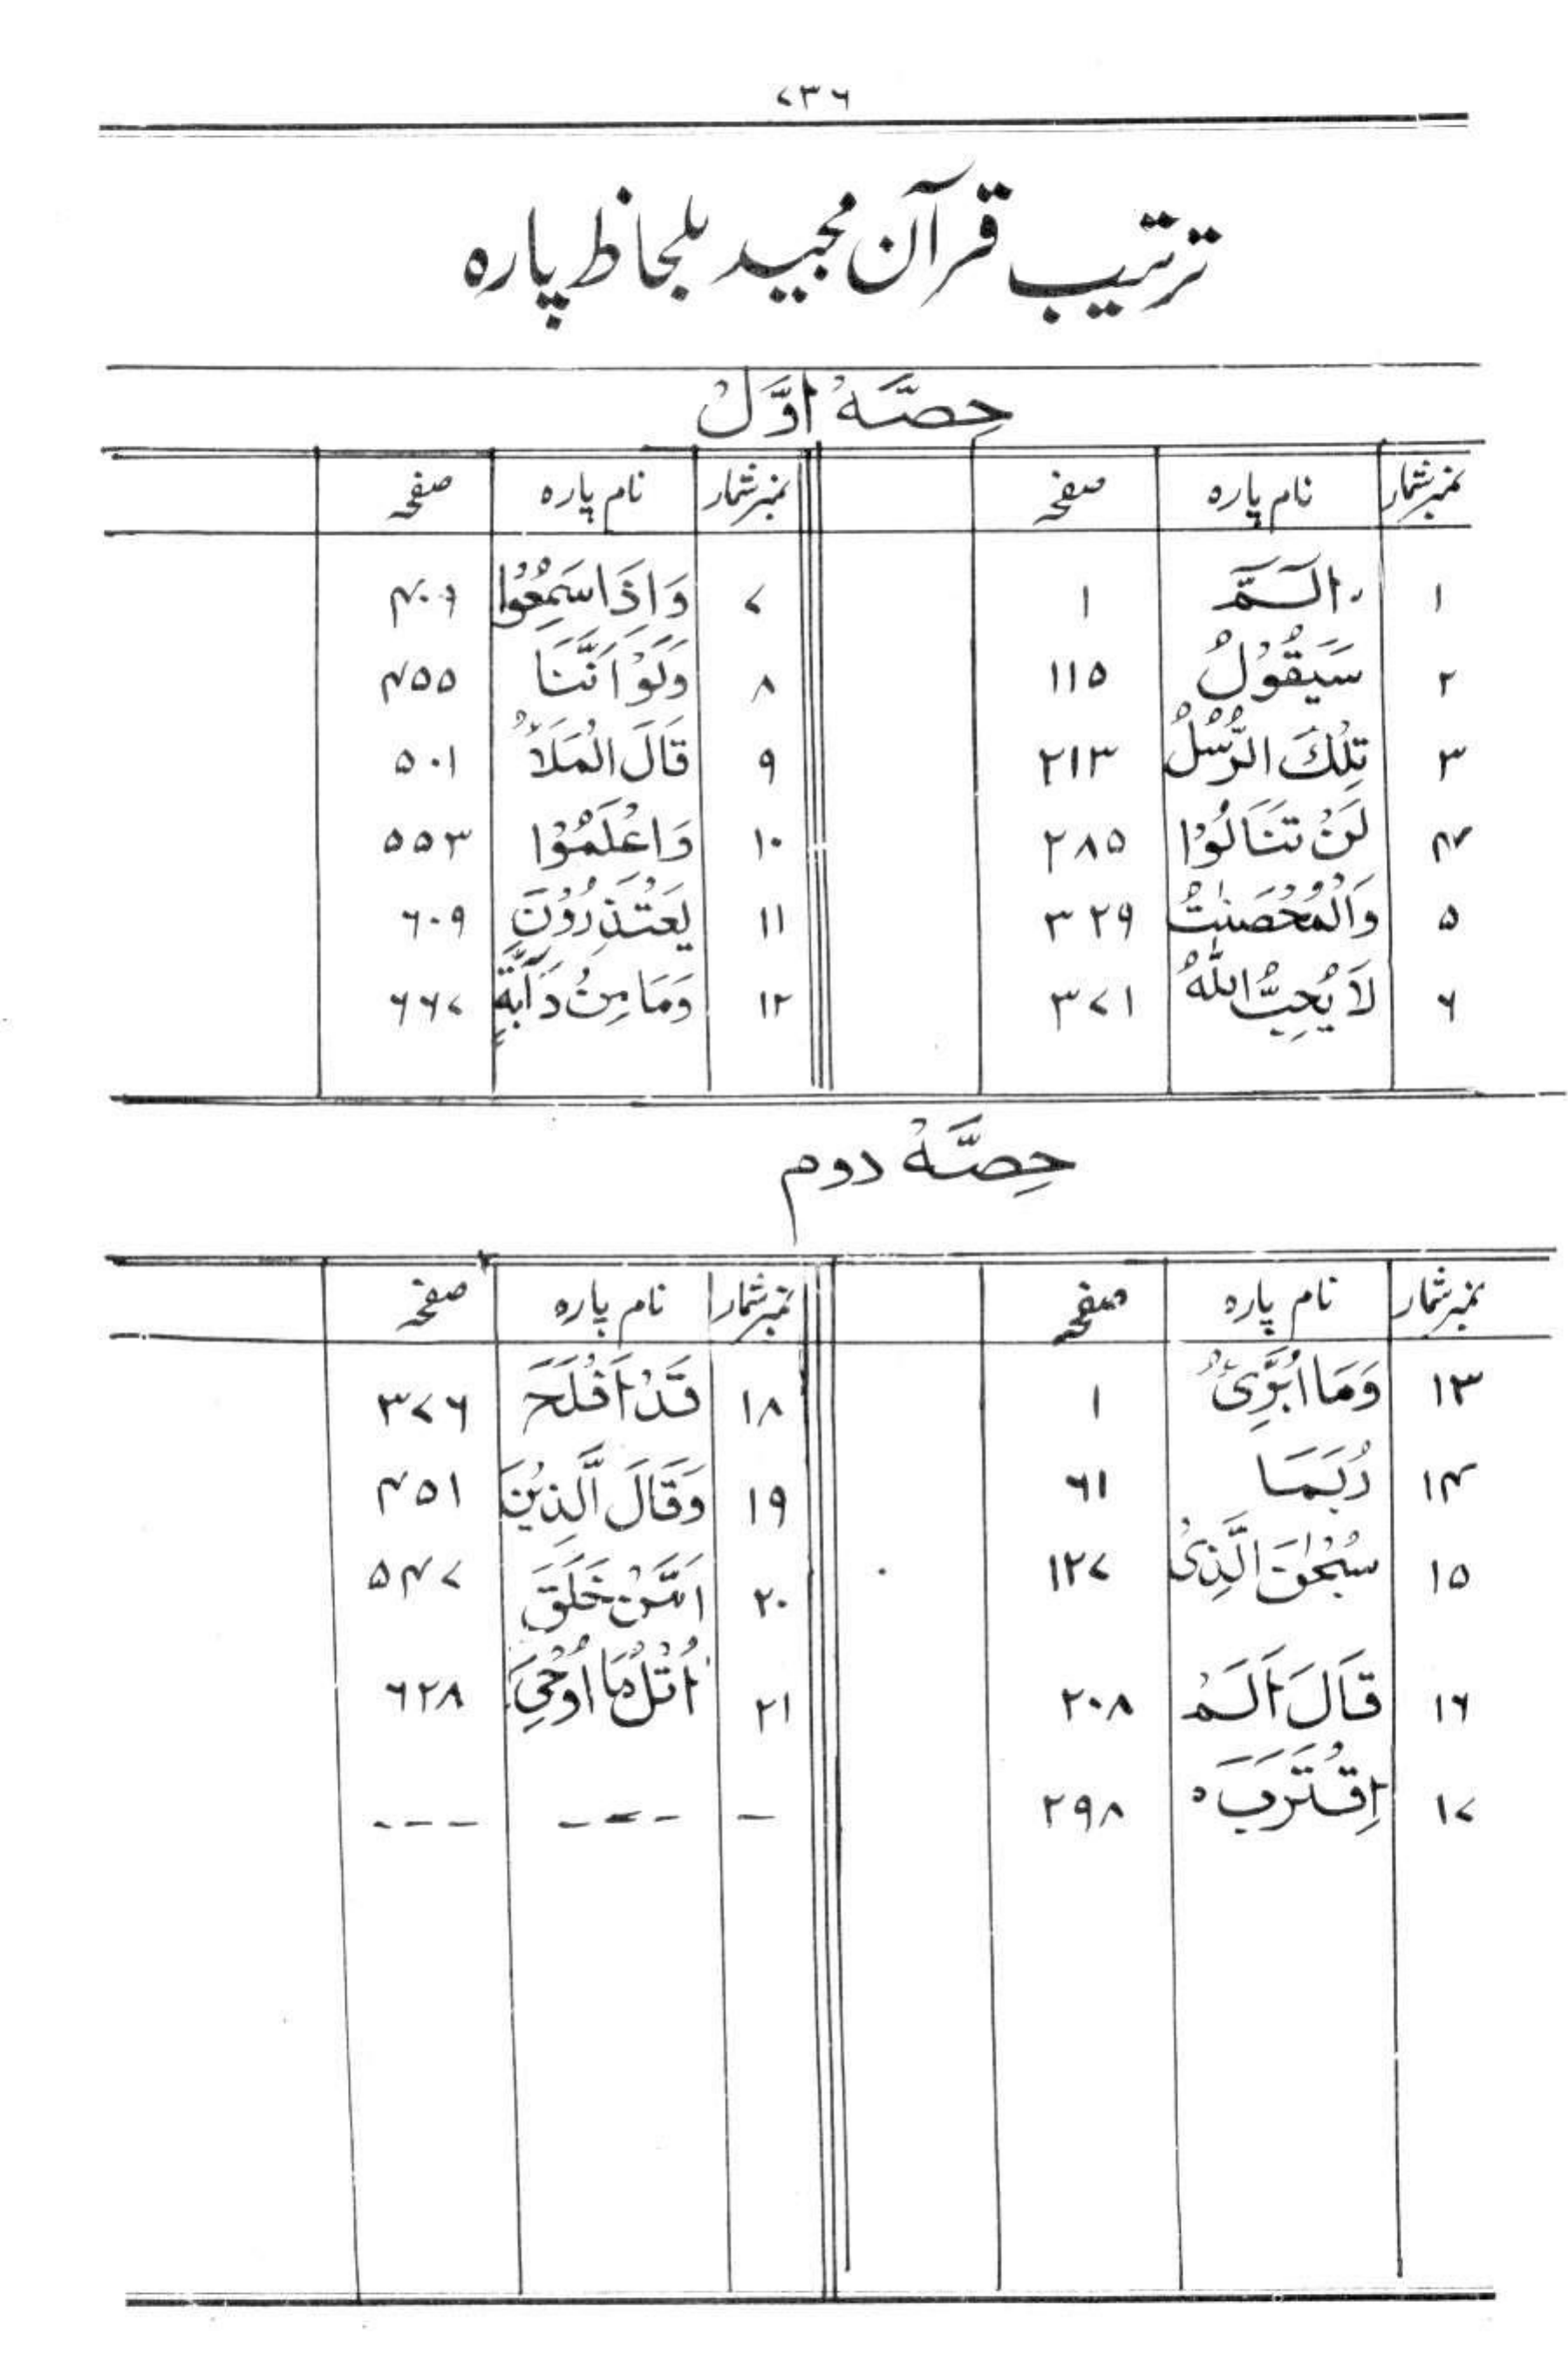 ۷۳۶
ترتیب قرآن مجید بلحاظ پارہ
حِصَّہ اوَّل
نمبرشمار نام پارہ صفحہ نمبرشمار نام پارہ صفحہ
۱ الٓـمّٓ ۱ ۷ وَاِذَا سَمِعُوْا ۴۰۶
۲ سَيَقُوْلُ ۱۱۵ ۸ وَلَوْ اَنَّنَا ۴۵۵
۳ تِلْكَ الرُّسُلُ ۲۱۳ ۹ قَالَ الْمَلَاُ ۵۰۱
۴ لَنْ تَنَالُوْا ۲۸۵ ۱۰ وَاعْلَمُوْا ۵۵۳
۵ وَالْمُحْصَنٰتُ ۳۲۹ ۱۱ يَعْتَذِرُوْنَ ۶۰۹
۶ لَا يُحِبُّ اللّٰهُ ۳۷۱ ۱۲ وَمَا مِنْ دَآبَّةٍ ۶۶۷
حِصَّہ دوم
نمبرشمار نام پارہ صفحہ نمبرشمار نام پارہ صفحہ
۱۳ وَمَا اُبَرِّئُ ۱ ۱۸ قَدْ اَفْلَحَ ۳۷۶
۱۴ رُبَمَا ۶۱ ۱۹ وَقَالَ الَّذِيْنَ ۴۵۱
۱۵ سُبْحٰنَ الَّذِىْ ۱۲۷ ۲۰ اَمَّنْ خَلَقَ ۵۴۷
۱۶ قَالَ اَلَمْ ۲۰۸ ۲۱ اُتْلُ مَا اُوْحِيَ ۶۲۸
۱۷ اِقْتَرَبَ ۲۹۸ - --- ---